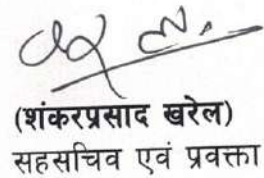 (शंकरप्रसाद खरेल)
सहसचिव एवं प्रवक्ता